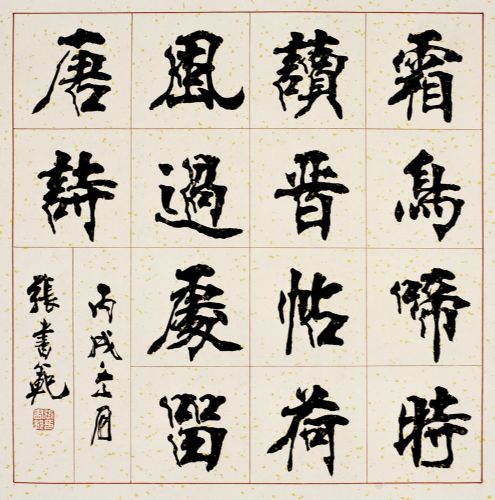 霜鳥啼時
讀晉帖荷
風過處留
唐詩
丙戌月
張書範